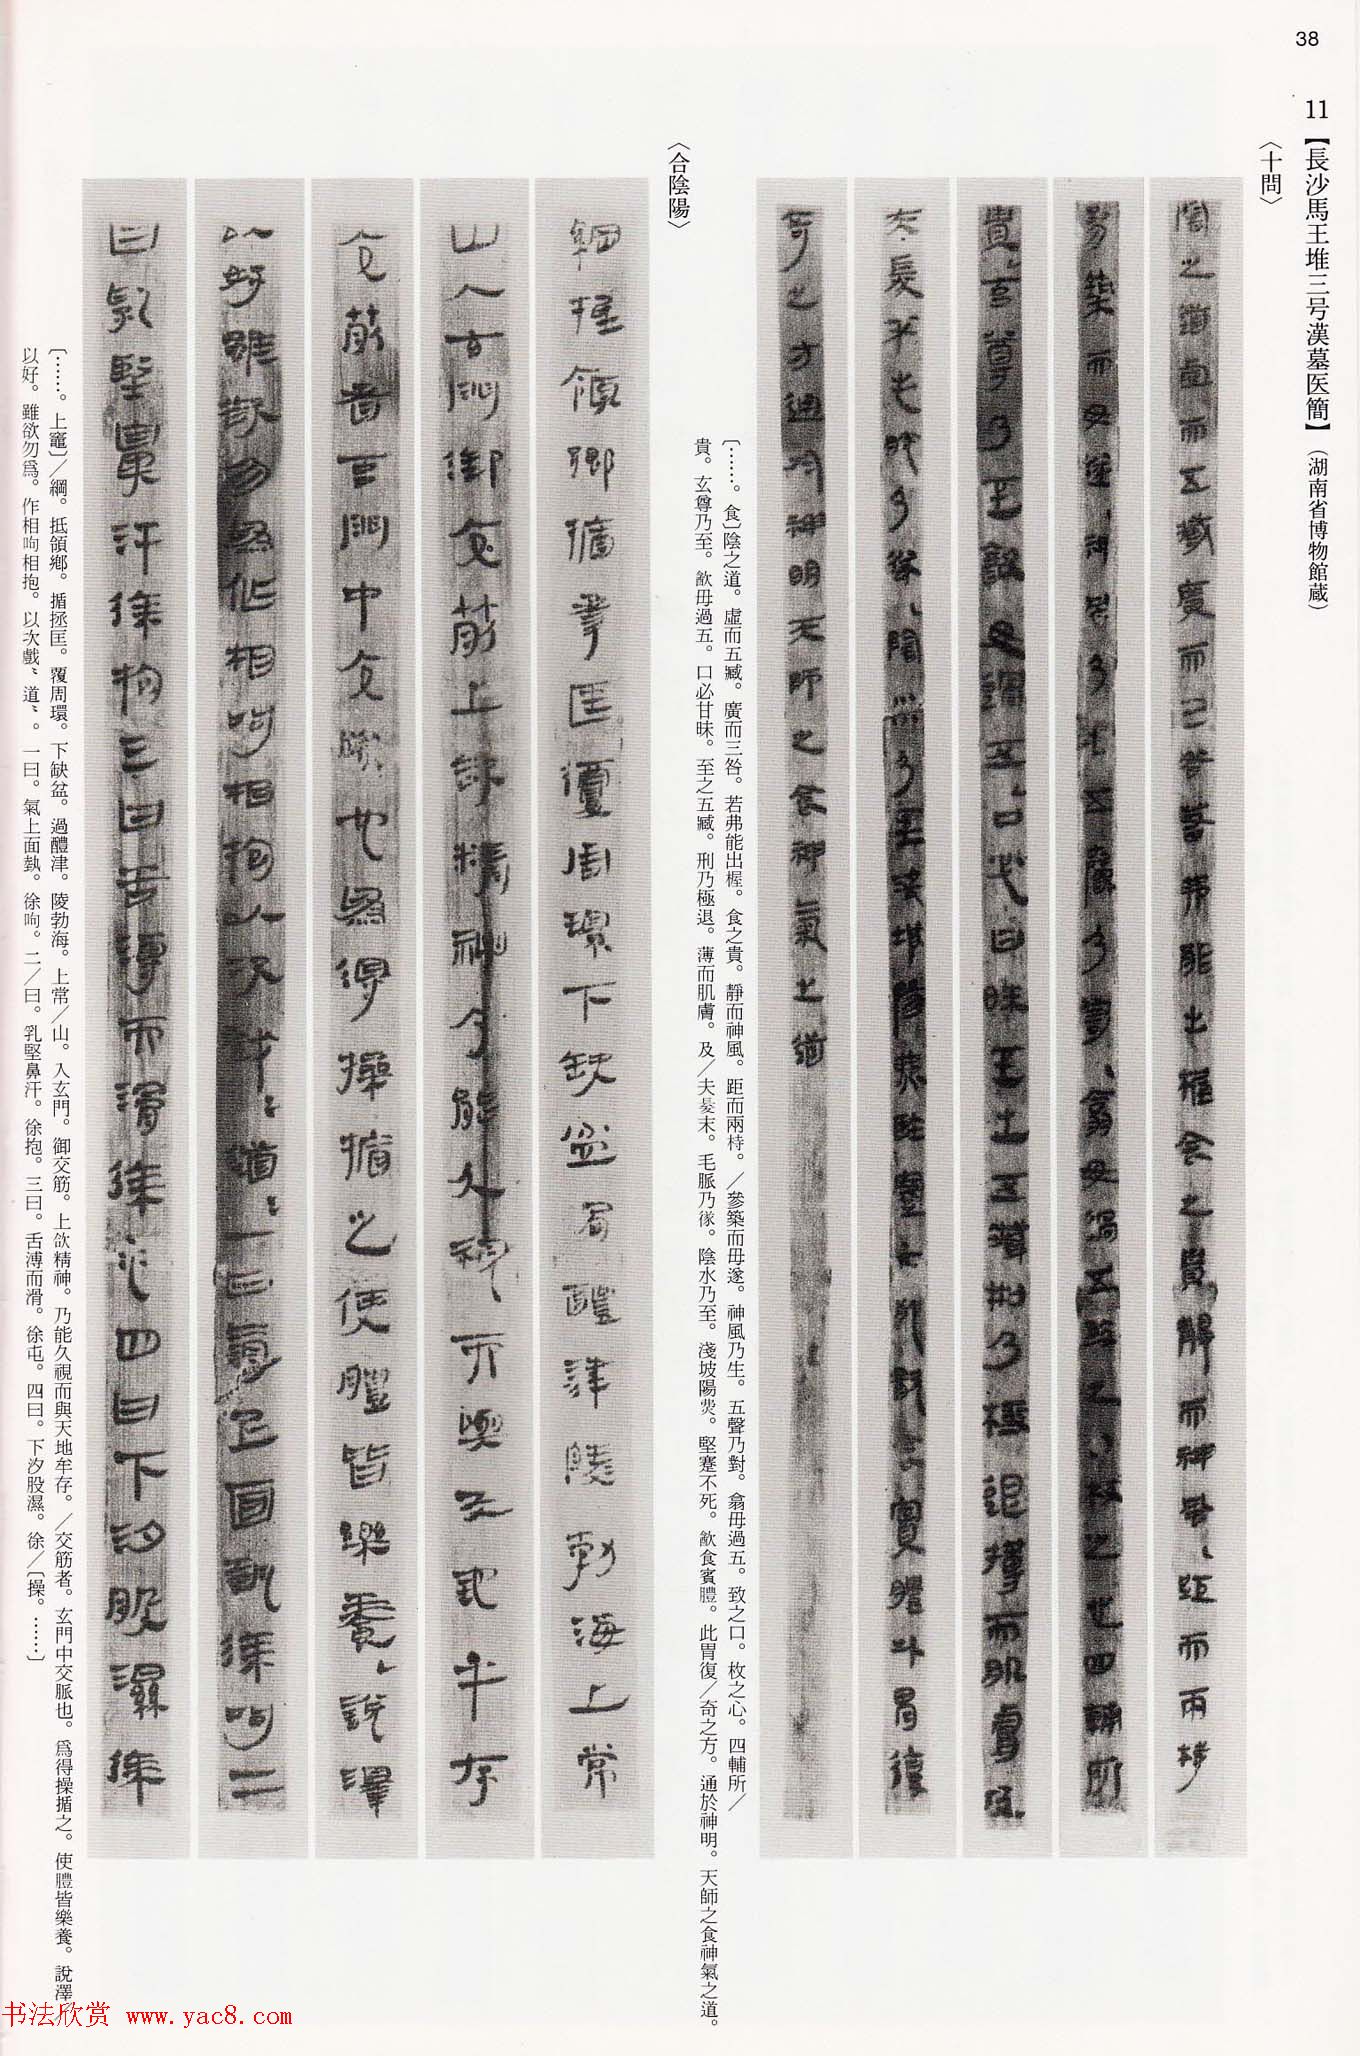 38
11【長沙馬王堆三号漢墓医簡】(湖南省博物館蔵)
〈十問〉
〔……。食〕陰之道。虛而五臧。廣而三咎。若弗能出楃。食之貴。靜而神風。距而兩峙。／參築而毋遂。神風乃生。五聲乃對。翕毋過五。致之口。枚之心。四輔所／
貴。玄尊乃至。飲毋過五。口必甘昧。至之五臧。刑乃極退。薄而肌膚。及／夫髮末。毛脈乃遂。陰水乃至。淺坡陽炎。堅蹇不死。飲食賓體。此胃復／奇之方。通於神明。天師之食神氣之道。
〈合陰陽〉
〔……。上竈〕／綱。抵領鄉。揗拯匡。覆周環。下缺盆。過醴津。陵勃海。上常／山。入玄門。御交筋。上欱精神。乃能久視而與天地牟存。／交筋者。玄門中交脈也。爲得操揗之。使體皆樂養。說澤／
以好。雖欲勿爲。作相呴相抱。以次戲〻道〻。一曰。氣上面埶。徐呴。二／曰。乳堅鼻汗。徐抱。三曰。舌溥而滑。徐屯。四曰。下汐股濕。徐／〔操。……〕
书法欣赏 www.yac8.com